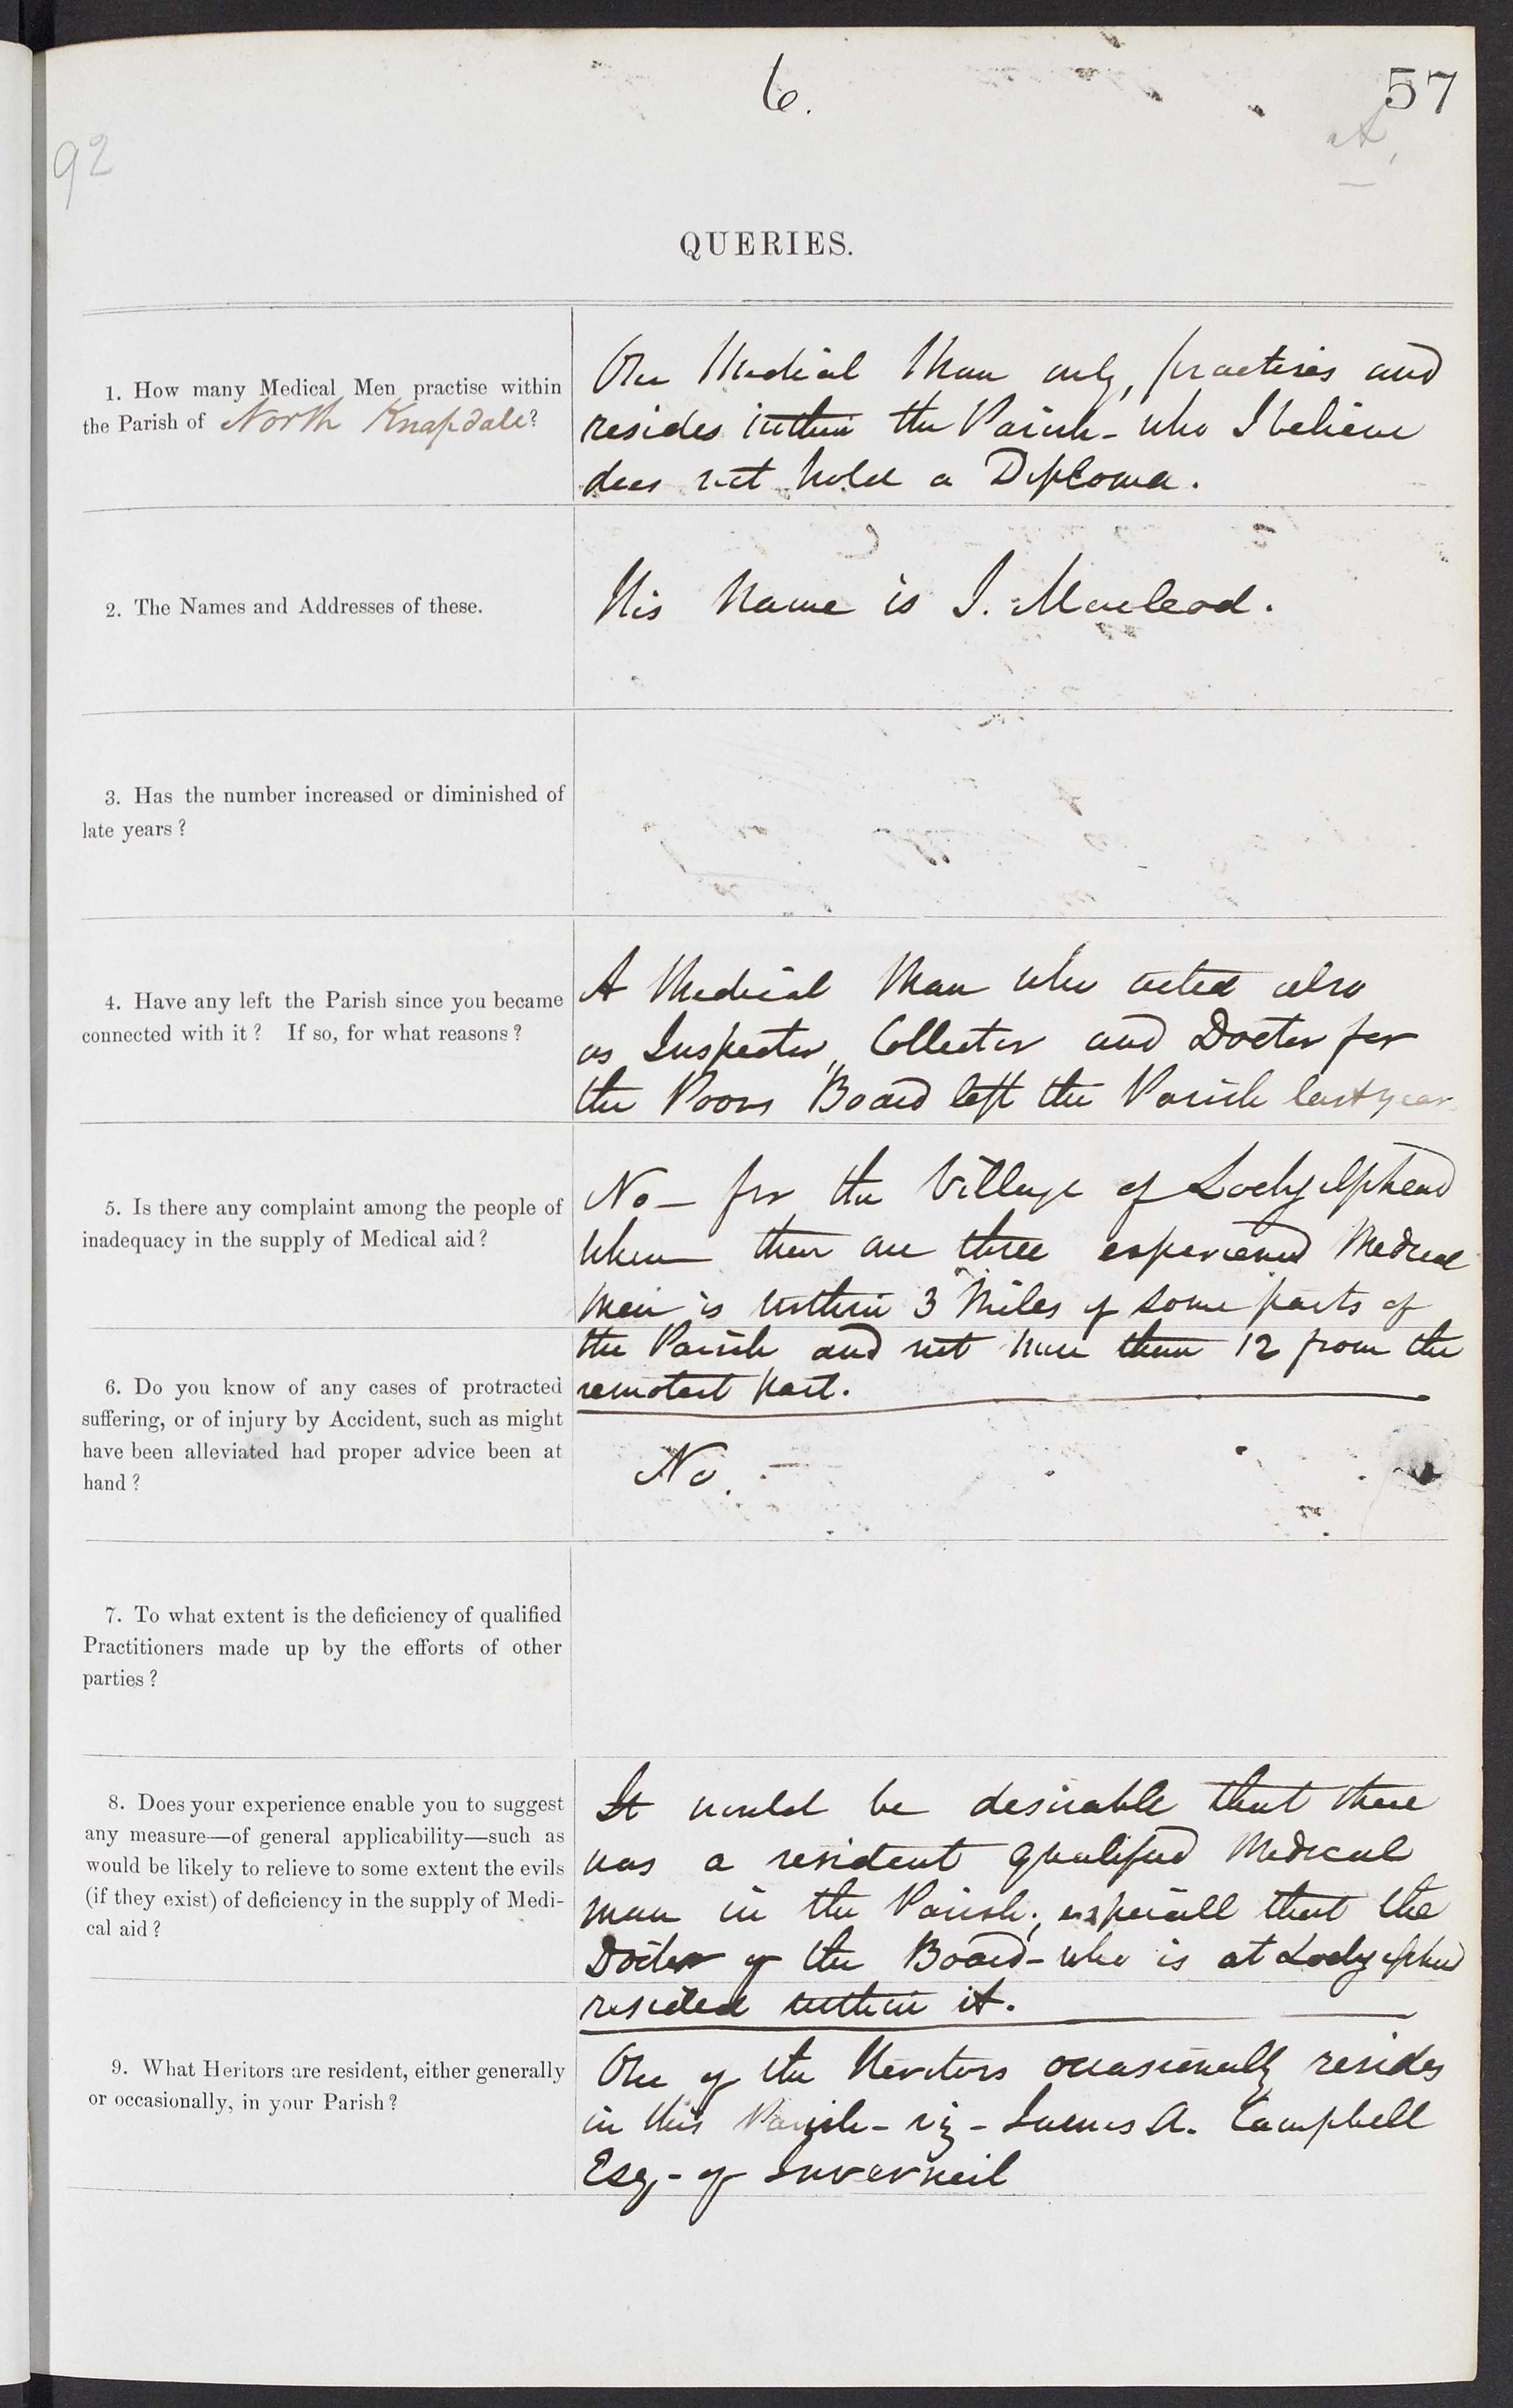 6.
57
92
QUERIES.
1. How many Medical Men practise within
the Parish of North Knapdale?
One Medical Man only, practises and
resides within the Parish - who I believe
does not hold a Diploma.
2. The Names and Addresses of these.
His Name is J. Macleod.
3. Has the number increased or diminished of
late years?
4. Have any left the Parish since you became
connected with it? If so, for what reasons?
A Medical Man who acted also
as Inspector, Collector and Doctor for
the Poors Board left the Parish last year
5. Is there any complaint among the people of
inadequacy in the supply of Medical aid?
No - for the Village of Lochgilphead
where there are three experienced Medical
men is within 3 Miles of some parts of
the Parish and not more than 12 from the
remotest part.
6. Do you know of any cases of protracted
suffering, or of injury by Accident, such as might
have been alleviated had proper advice been at
hand?
No. -
7. To what extent is the deficiency of qualified
Practitioners made up by the efforts of other
parties?
8. Does your experience enable you to suggest
any measure—of general applicability—such as
would be likely to relieve to some extent the evils
(if they exist) of deficiency in the supply of Medi-
cal aid?
It would be desirable that there
was a resident qualified Medical
man in the Parish; especiall that the
Doctor of the Board - who is at Lochgilphead
resided within it.
9. What Heritors are resident, either generally
or occasionally, in your Parish?
One of the Heritors occasionally resides
in this Parish - viz - James A. Campbell
Esq - of Inverneil